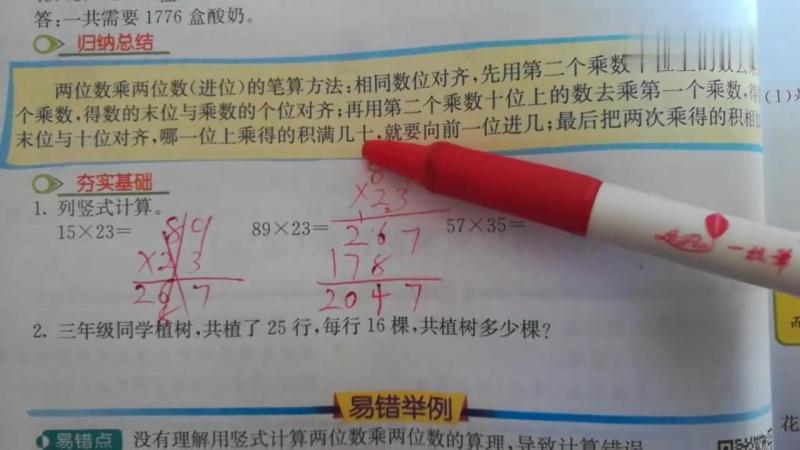 答:一共需要 1776 盒酸奶。
归纳总结
两位数乘两位数(进位)的笔算方法:相同数位对齐,先用第二个乘数
个乘数,得数的末位与乘数的个位对齐;再用第二个乘数十位上的数去乘第一个乘数,
末位与十位对齐,哪一位上乘得的积满几十,就要向前一位进几;最后把两次乘得的积相
(1)
夯实基础
1. 列竖式计算。
15×23= 89×23= 57×35=
89
×23
267
×23
267
178
2047
一枝笔
2. 三年级同学植树,共植了 25 行,每行 16 棵,共植树多少棵?
易错举例
易错点 没有理解用竖式计算两位数乘两位数的算理,导致计算错误
花